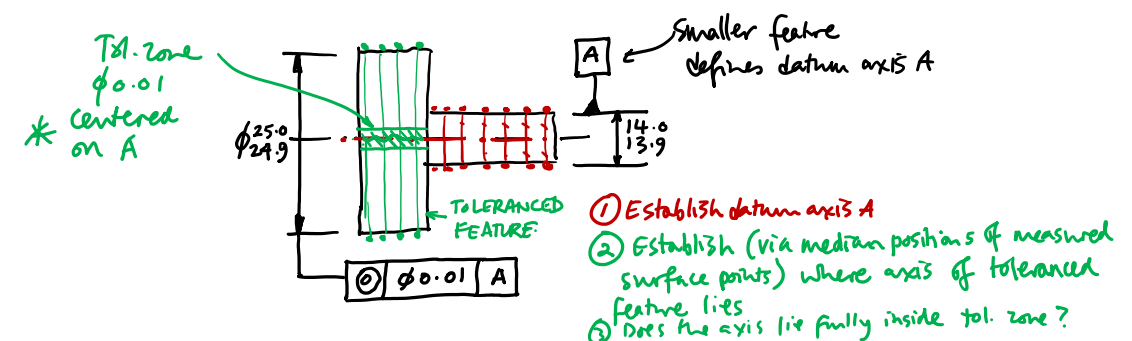 Tol. zone
⌀0.01
* Centered
on A
⌀25.0
24.9
A
Smaller feature
defines datum axis A
14.0
13.9
TOLERANCED
FEATURE.
◎ ⌀0.01 A
① Establish datum axis A
② Establish (via median positions of measured
surface points) where axis of toleranced
feature lies
③ Does the axis lie fully inside tol. zone?